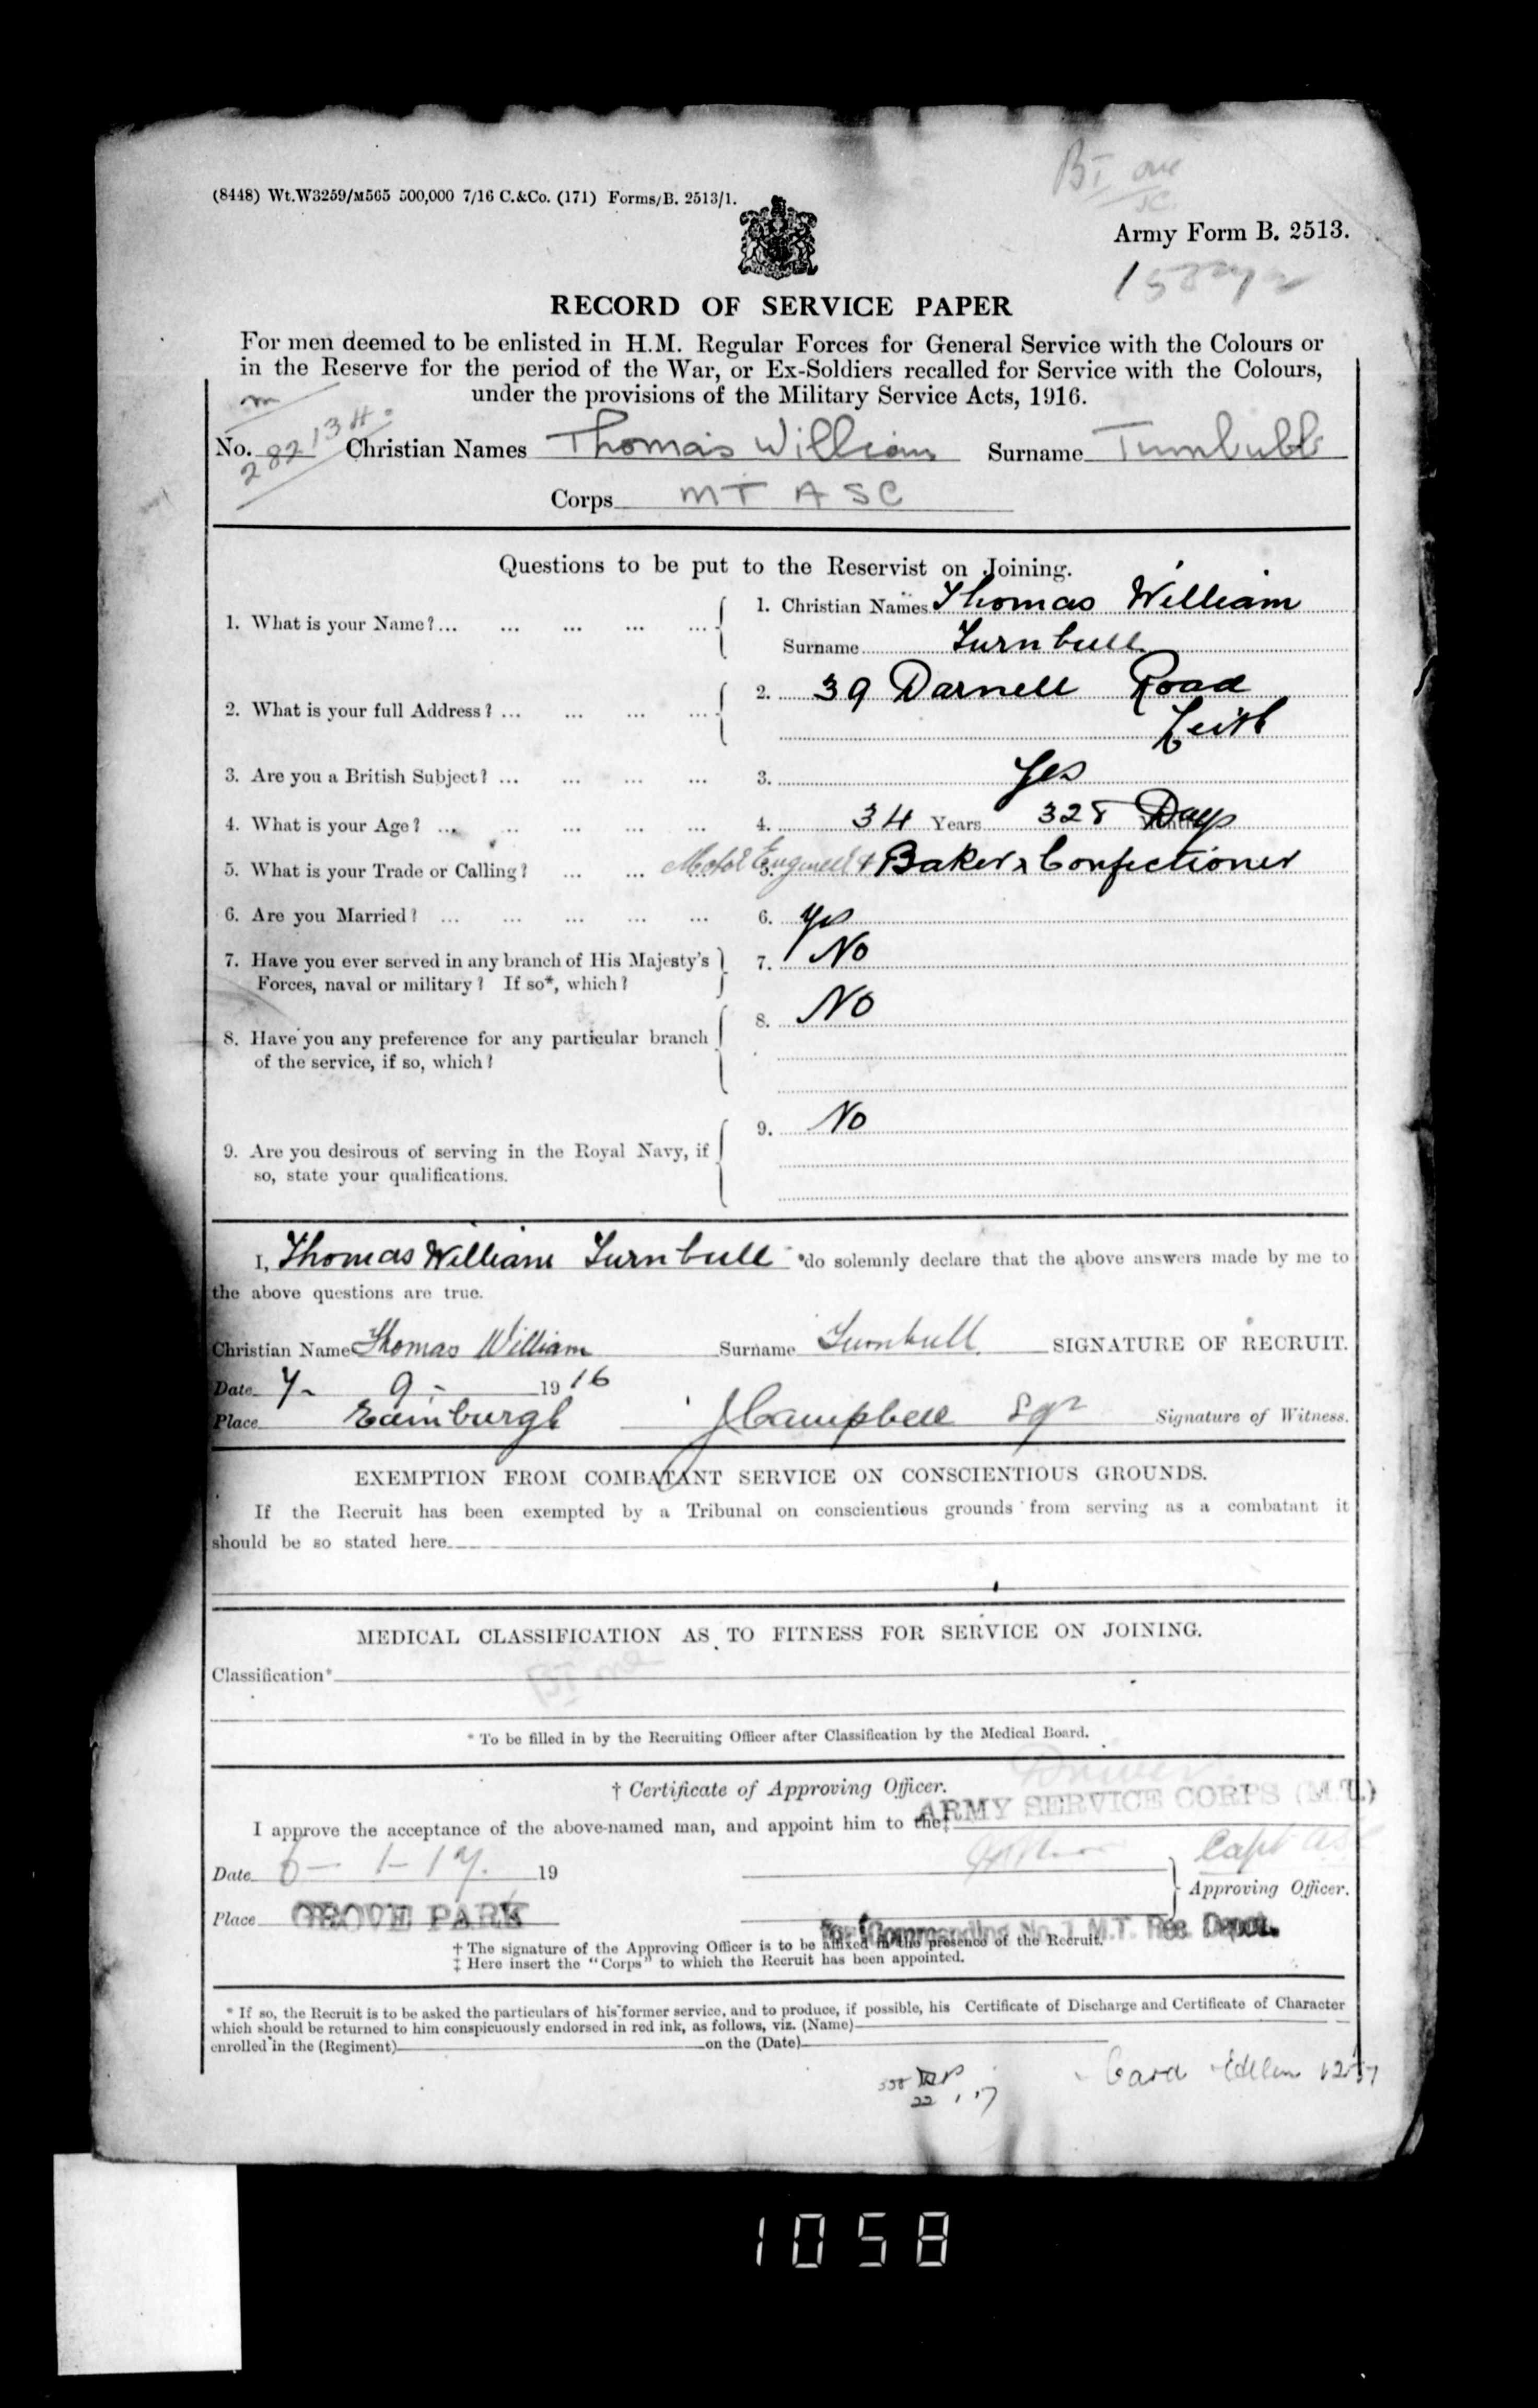 BI one
(8448) Wt.W3259/M565 500,000 7/16 C.&Co. (171) Forms/B. 2513/1.
Army Form B. 2513.
RECORD OF SERVICE PAPER
For men deemed to be enlisted in H.M. Regular Forces for General Service with the Colours or
in the Reserve for the period of the War, or Ex-Soldiers recalled for Service with the Colours,
under the provisions of the Military Service Acts, 1916.
m
No. 282134 Christian Names Thomas William Surname Turnbull
Corps MT ASC
Questions to be put to the Reservist on Joining.
1. What is your Name?... ... ... ... ... 1. Christian Names Thomas William
Surname Turnbull
2. What is your full Address? ... ... ... ... 2. 39 Darnell Road
Leith
3. Are you a British Subject? ... ... ... ... 3. Yes
4. What is your Age? ... ... ... ... ... 4. 34 Years 328 Days
5. What is your Trade or Calling? ... ... Motor Engineer & 5. Baker & Confectioner
6. Are you Married? ... ... ... ... ... 6. Yes
7. Have you ever served in any branch of His Majesty's 7. No
Forces, naval or military? If so*, which?
8. Have you any preference for any particular branch 8. No
of the service, if so, which?
9. Are you desirous of serving in the Royal Navy, if 9. No
so, state your qualifications.
I, Thomas William Turnbull *do solemnly declare that the above answers made by me to
the above questions are true.
Christian Name Thomas William Surname Turnbull SIGNATURE OF RECRUIT.
Date 7- 9- 1916
Place Edinburgh J Campbell Sgr Signature of Witness.
EXEMPTION FROM COMBATANT SERVICE ON CONSCIENTIOUS GROUNDS.
If the Recruit has been exempted by a Tribunal on conscientious grounds from serving as a combatant it
should be so stated here
MEDICAL CLASSIFICATION AS TO FITNESS FOR SERVICE ON JOINING.
Classification* BI one
* To be filled in by the Recruiting Officer after Classification by the Medical Board.
Driver
† Certificate of Approving Officer.
ARMY SERVICE CORPS (M.T.)
I approve the acceptance of the above-named man, and appoint him to the‡
Date 6- 1-17. 19 Capt ASC
Approving Officer.
Place GROVE PARK
for Commanding No. 1 M.T. Res. Depot.
† The signature of the Approving Officer is to be affixed in the presence of the Recruit.
‡ Here insert the "Corps" to which the Recruit has been appointed.
* If so, the Recruit is to be asked the particulars of his former service, and to produce, if possible, his Certificate of Discharge and Certificate of Character
which should be returned to him conspicuously endorsed in red ink, as follows, viz. (Name)
enrolled in the (Regiment) on the (Date)
Card
1058